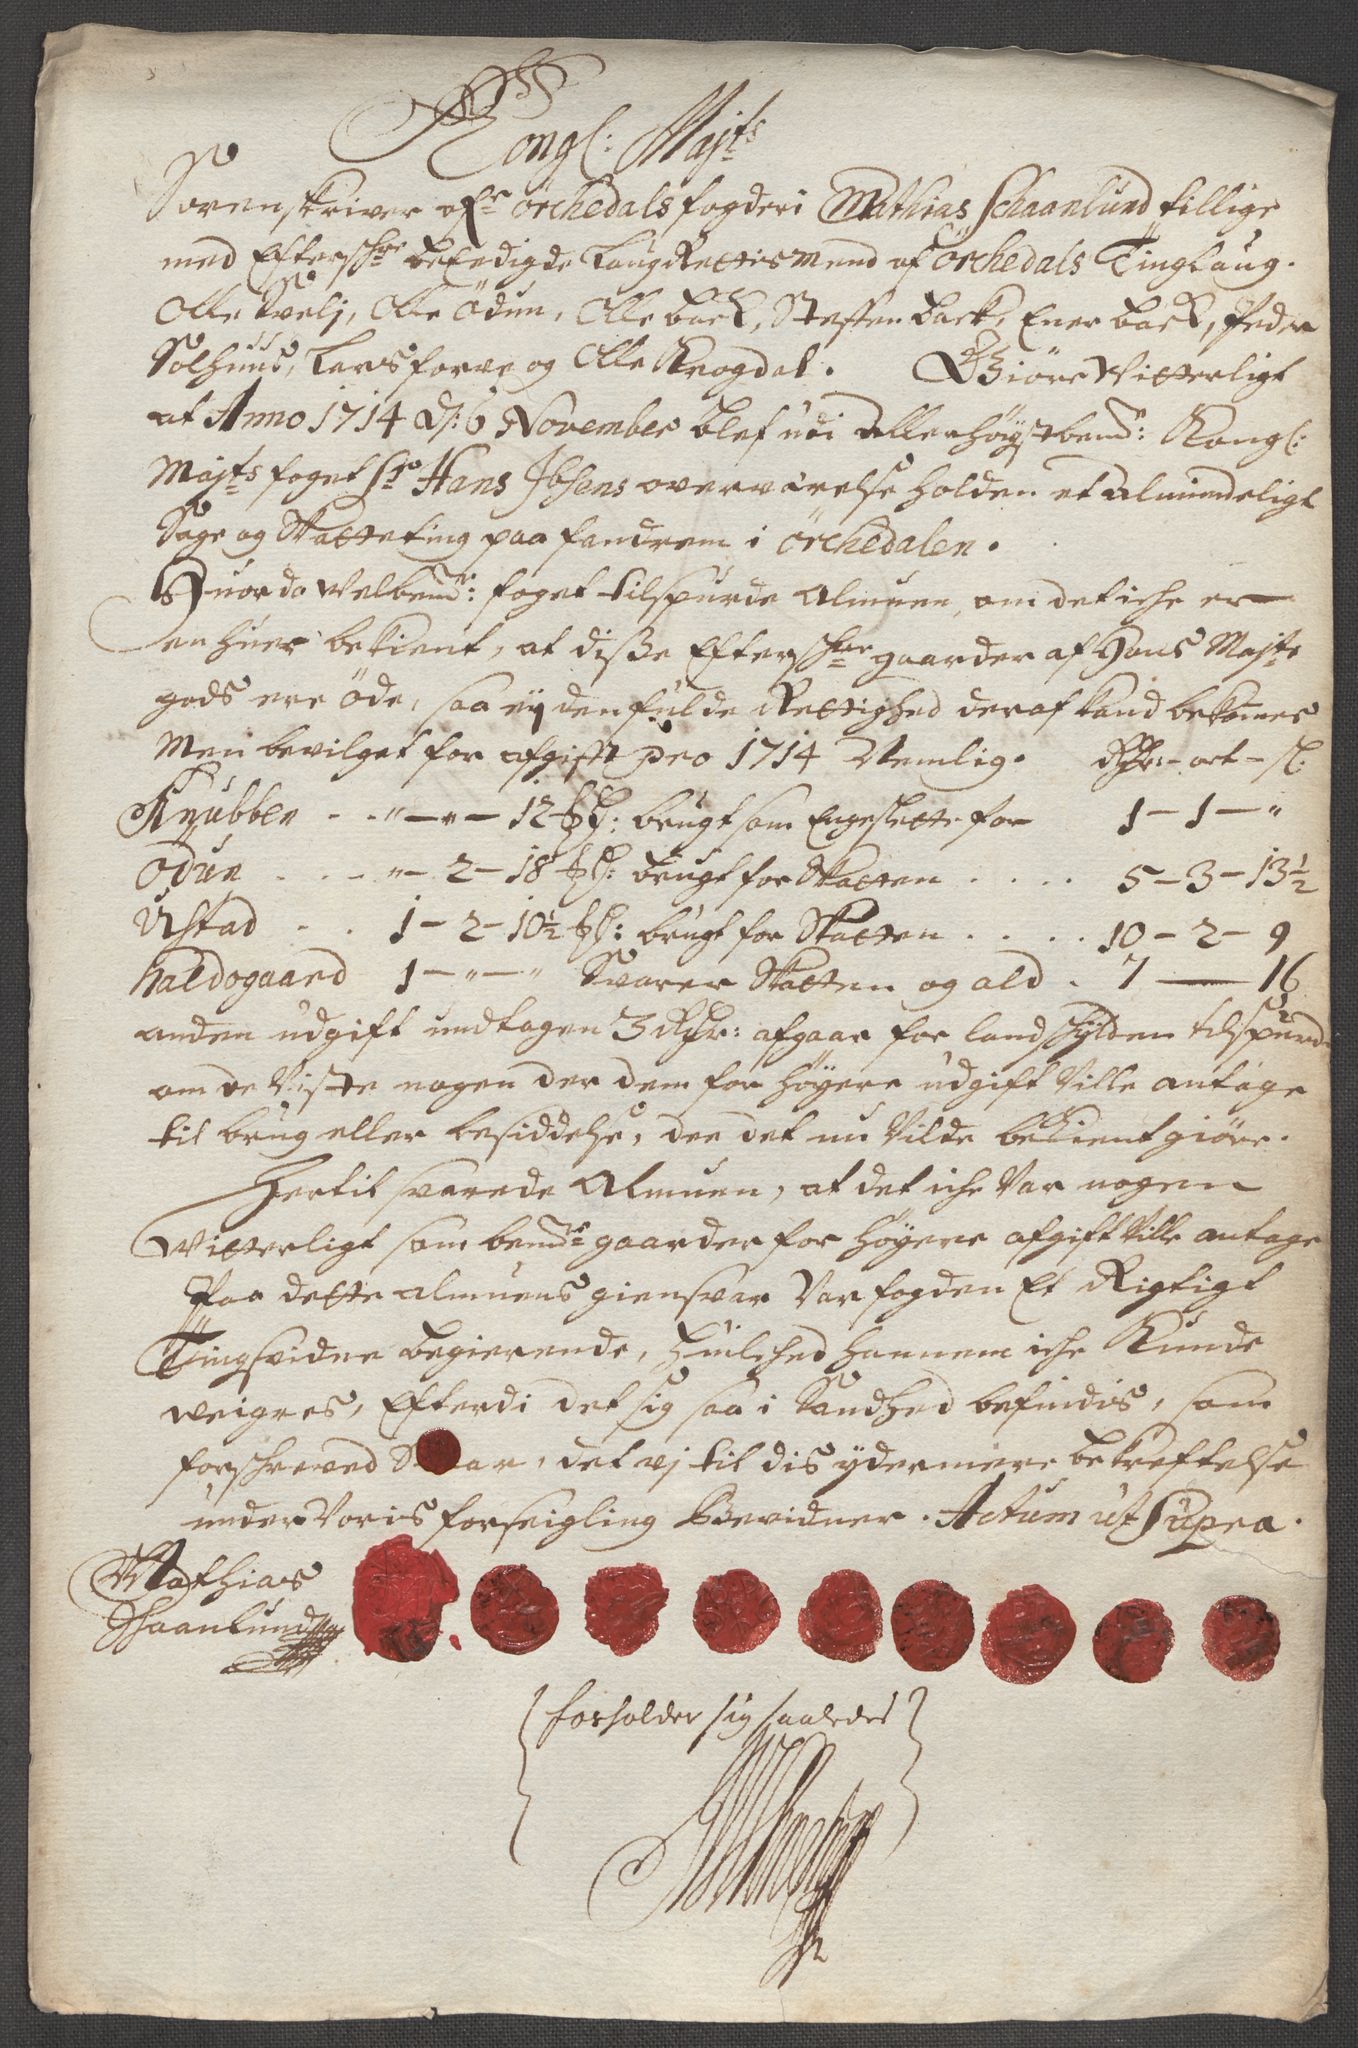 Kongl: Majts
Sorenskriver ofr Örchedals fogderi Mathias Schaanlund tillige
med Efterschr: beEdigde LaugRettismend af Örchedals Tinglaug.
Olle Kvelj, Olle Ödun, Olle back, Steffen back, Ener back, Peder
Solhuus, Lars forve og Olle Krogdal. Giöre Witterligt
at Anno 1714 d: 6 November blef udi allerhöystbemte: Kongl:
Majts foget Sr Hans Ibsens overværelse holden et almindeligt
Sage og Skatteting paa fandrem i Örchedalen.
Huor da Welbemte: foget tilspurde Almuen, om det iche er
en huer bekient, at disse Efterschrne gaarder af Hans Majts
gods ere öde, saa ey den fulde Rettighed deraf kand bekomes
Men bevilget for afgift pro 1714 Nemlig. Rdr: - ort - s:
Knubben . . " - " - 12 : brugt som Engeslette for 1 - 1 - "
Ödun . . . " - 2 - 18 : brugt for Skatten . . . . 5 - 3 - 13½
Ustad . . 1 - 2 - 10½ : brugt for Skatten . . . . 10 - 2 - 9
haldogaard 1 - " - " Svarer Skatten og ald . 7 — 16
anden udgift undtagen 3 Rdr: afgaar for landschylden tilspurde
om de Viste nogen der dem for höyere udgift Ville antage
til brug eller besiddelse, dee det nu Vilde bekient giöre.
Hertil svarede Almuen, at det iche Var nogen
Witterligt som bemte gaarder for höyere afgift Ville antage
Paa dette almuens giensvar Var fogden Et Rigtigt
Tingsvidne begierende, huilched hannem iche Kunde
weigres, Efterdi det sig saa i Sandhed befindis, som
forschreved Staar, det vj til dis ydermere bekreftelse
under Voris forseigling Bevidner. Actum ut Supra.
Mathias
Schaanlund
forholder sig saaledes